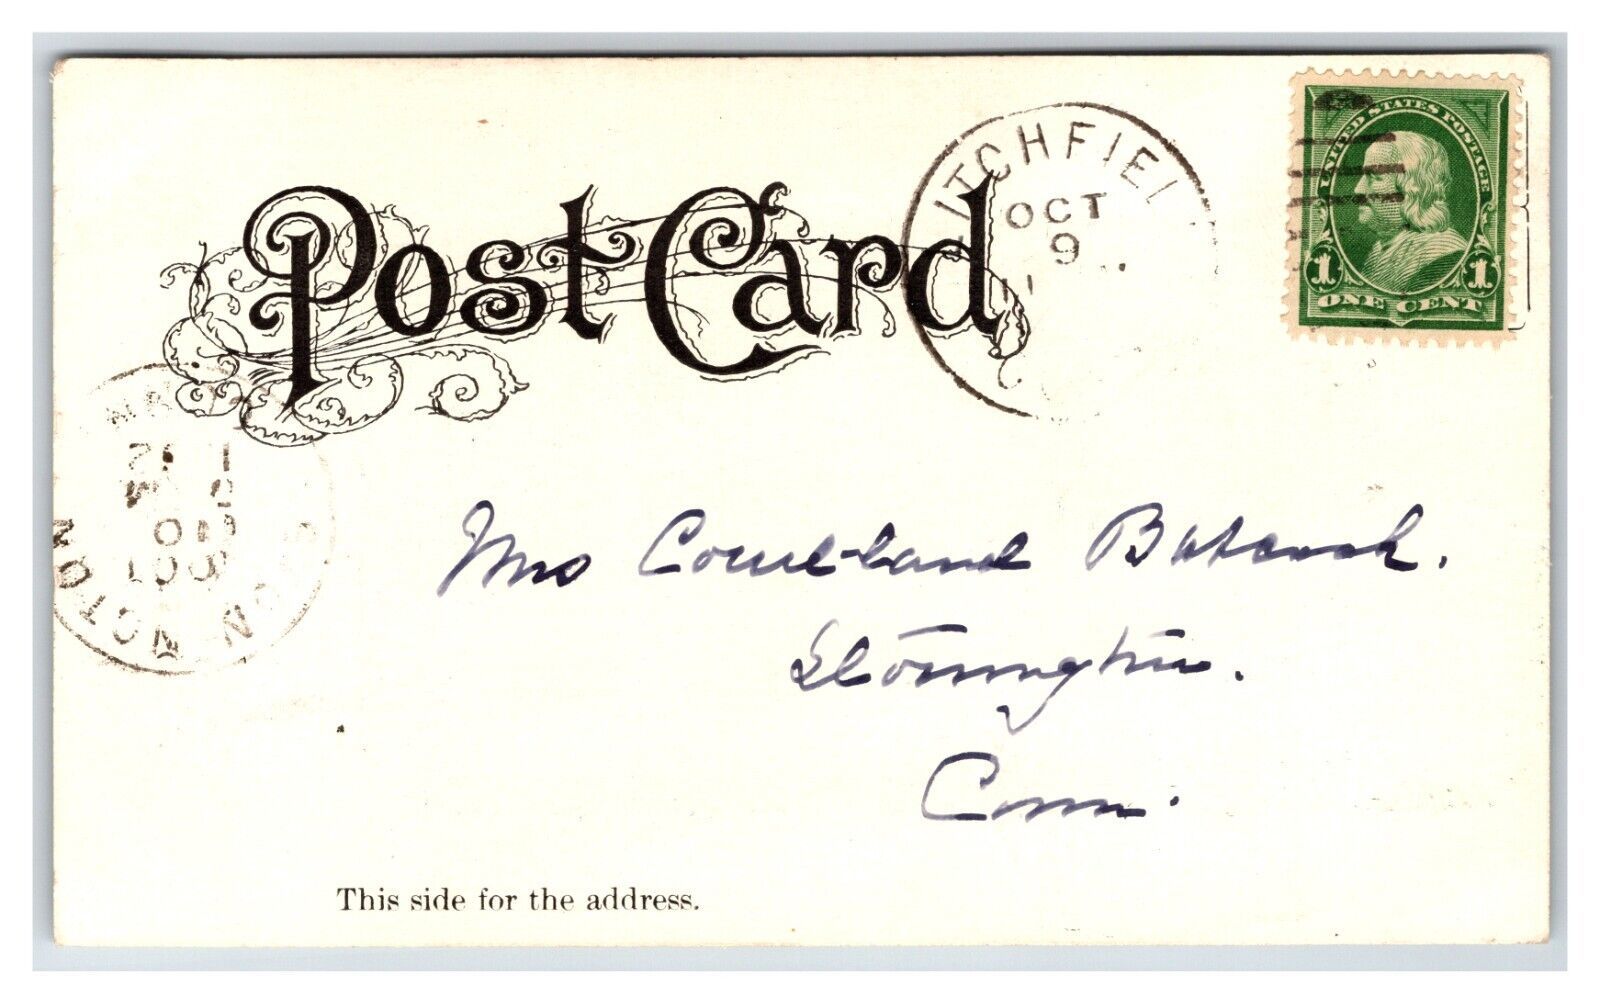 Post Card
ITCHFIEL
OCT
9
UNITED STATES POSTAGE
1 1
ONE CENT
OCT
10
Mrs Courtland Babcock.
Stonington.
Conn.
This side for the address.